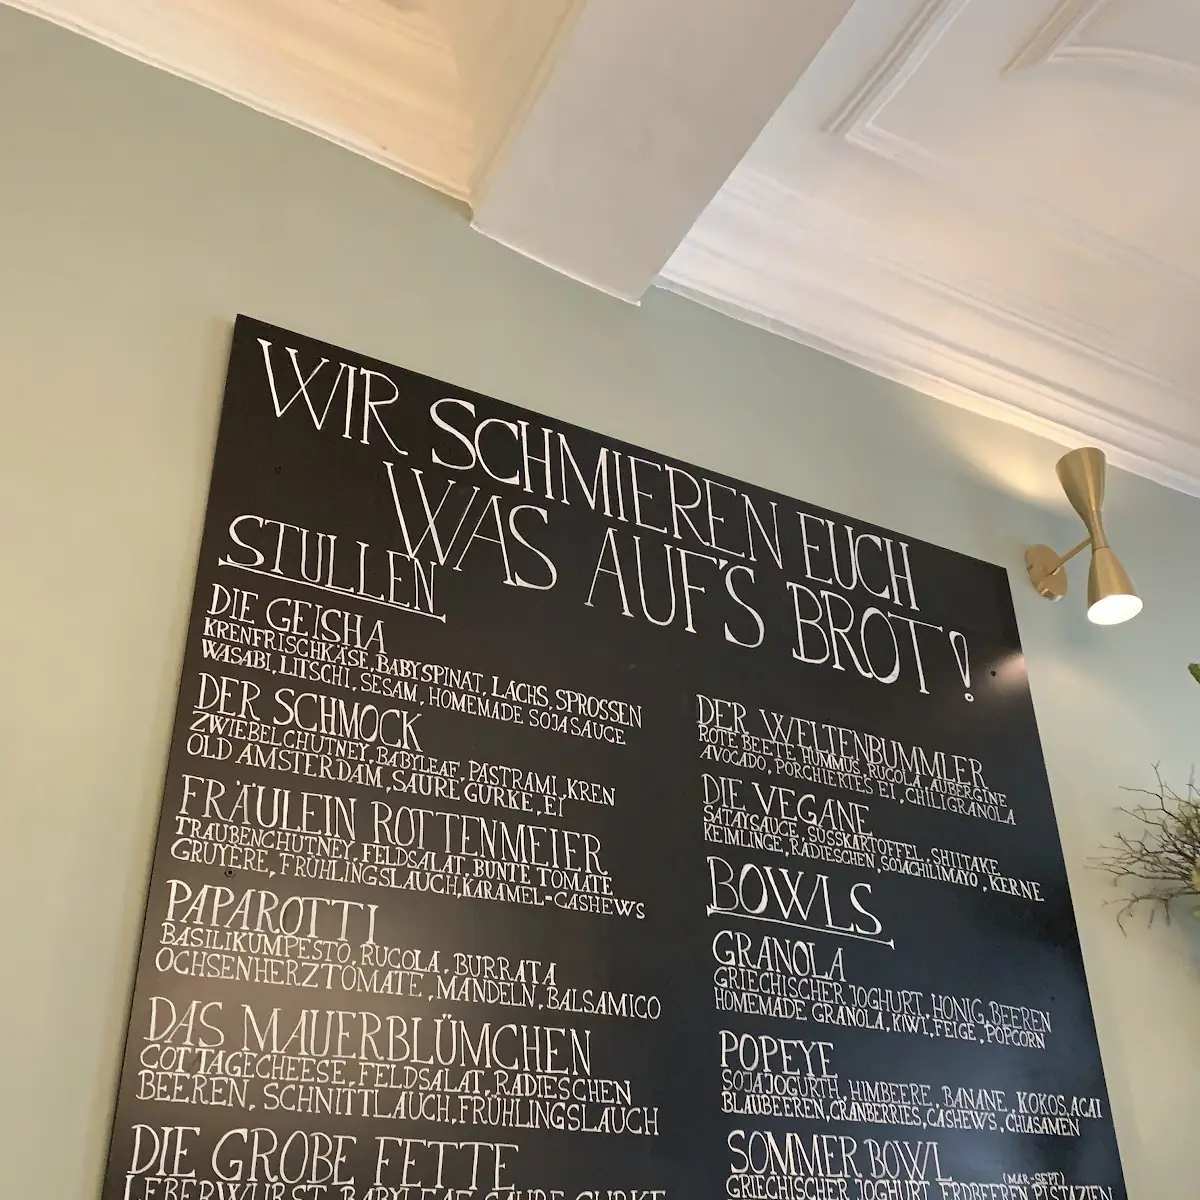 WIR SCHMIEREN EUCH
WAS AUF'S BROT!
STULLEN
DIE GEISHA
KRENFRISCHKÄSE, BABYSPINAT, LACHS, SPROSSEN
WASABI, LITSCHI, SESAM, HOMEMADE SOJASAUCE
DER SCHMOCK
ZWIEBELCHUTNEY, BABYLEAF, PASTRAMI, KREN
OLD AMSTERDAM, SAURE GURKE, EI
FRÄULEIN ROTTENMEIER
TRAUBENCHUTNEY, FELDSALAT, BUNTE TOMATE
GRUYERE, FRÜHLINGSLAUCH, KARAMEL-CASHEWS
PAPAROTTI
BASILIKUMPESTO, RUCOLA, BURRATA
OCHSENHERZTOMATE, MANDELN, BALSAMICO
DAS MAUERBLÜMCHEN
COTTAGECHEESE, FELDSALAT, RADIESCHEN
BEEREN, SCHNITTLAUCH, FRÜHLINGSLAUCH
DIE GROBE FETTE
LEBERWURST, BABYLEAF, SAURE GURKE
DER WELTENBUMMLER
ROTE BEETE HUMMUS, RUCOLA, AUBERGINE
AVOCADO, PORCHIERTES EI, CHILIGRANOLA
DIE VEGANE
SATAYSAUCE, SÜSSKARTOFFEL, SHIITAKE
KEIMLINGE, RADIESCHEN, SOJACHILIMAYO, KERNE
BOWLS
GRANOLA
GRIECHISCHER JOGHURT, HONIG, BEEREN
HOMEMADE GRANOLA, KIWI, FEIGE, POPCORN
POPEYE
SOJAJOGURTH, HIMBEERE, BANANE, KOKOS, ACAI
BLAUBEEREN, CRANBERRIES, CASHEWS, CHIASAMEN
SOMMER BOWL (MAR-SEPT)
GRIECHISCHER JOGHURT, ERDBEEREN, PISTAZIEN